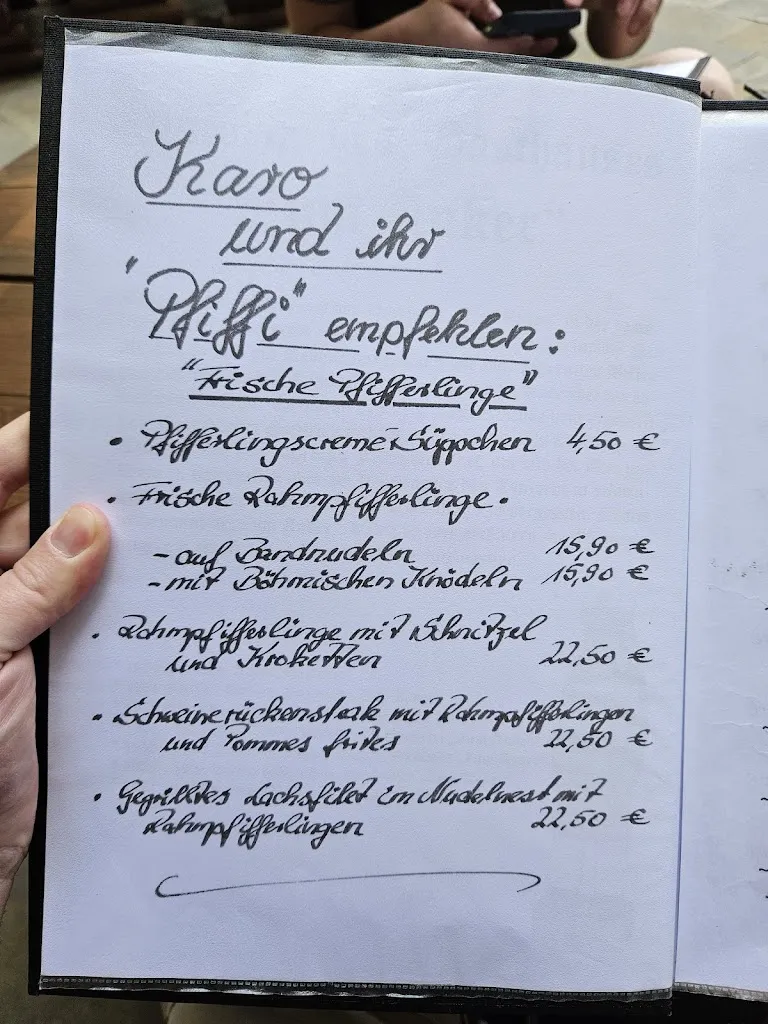 Karo
und ihr
"Pfiffi" empfehlen:
"Frische Pfifferlinge"
• Pfifferlingscreme-Süppchen 4,50 €
• Frische Rahmpfifferlinge.
- auf Bandnudeln 15,90 €
- mit Böhmischen Knödeln 15,90 €
• Rahmpfifferlinge mit Schnitzel
und Kroketten 22,50 €
• Schweinerückensteak mit Rahmpfifferlingen
und Pommes frites 22,50 €
• Gegrilltes Lachsfilet im Nudelnest mit
Rahmpfifferlingen 22,50 €